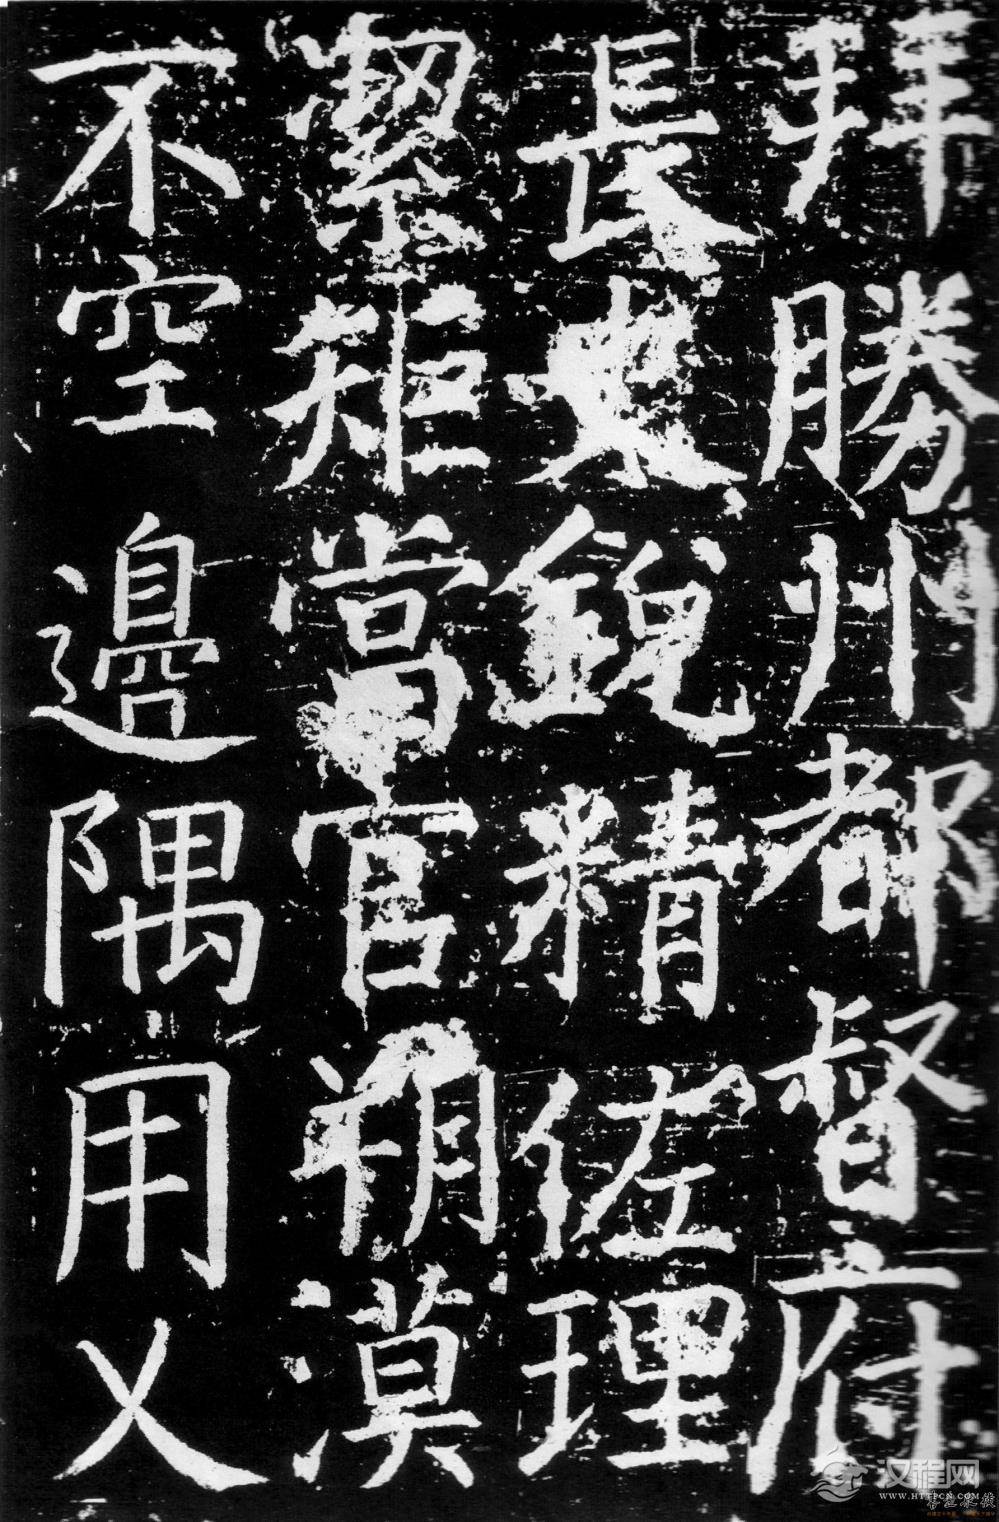 拜勝州都督府
長史銳精佐理
潔矩當官朔漠
不空邊隅用乂
汉程网
WWW.HTTPCN.COM